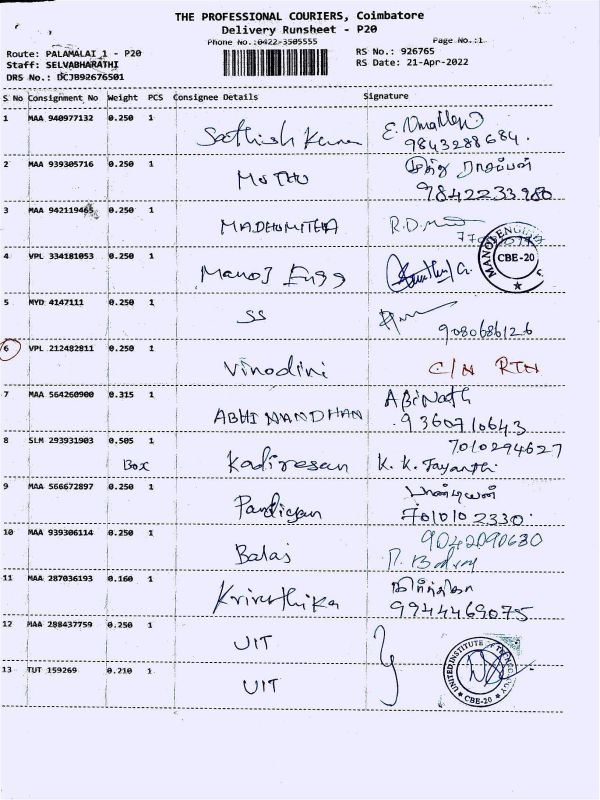 THE PROFESSIONAL COURIERS, Coimbatore
Delivery Runsheet - P20
Phone No.:0422-3505555 Page No.:1
Route: PALAMALAI 1 - P20 RS No.: 926765
Staff: SELVABHARATHI RS Date: 21-Apr-2022
DRS No.: DCJB92676501
S No Consignment No Weight PCS Consignee Details Signature
1 MAA 940977132 0.250 1
Sathish Kumar 9843288684.
2 MAA 939305716 0.250 1
MUTHU 9842233980
3 MAA 942119465 0.250 1
MADHUMITHA R.D.
4 VPL 334181053 0.250 1
Manoj Engg CBE-20
5 MYD 4147111 0.250 1
SS 9080686126
6 VPL 212482811 0.250 1
Vinodini C/N RTN
7 MAA 564260900 0.315 1 ABiNath
ABHINANDHAN 9360710643
8 SLM 293931903 0.505 1 7010294627
Box Kadiresan K. K. Jayanthi
9 MAA 566672897 0.250 1 பாண்டியன்
Pandiyan 7010102330
10 MAA 939306114 0.250 1 9042090680
Balaj
11 MAA 287036193 0.160 1
Kriruthika 9944469075
12 MAA 288437759 0.250 1
UIT
13 TUT 159269 0.210 1
UIT UNITED INSTITUTE OF TECHNOLOGY CBE-20